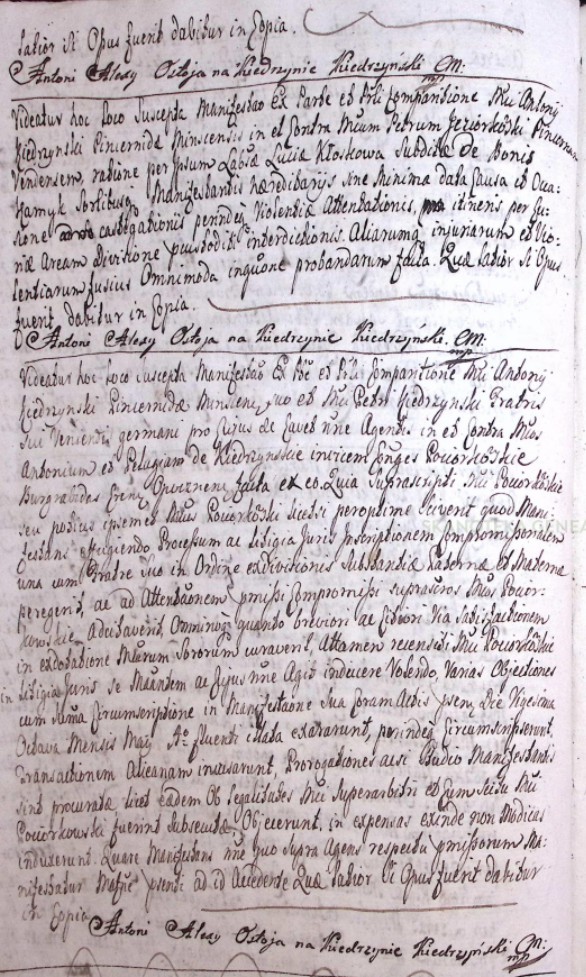 Latior si Opus fuerit dabitur in Copia.
Antoni Alexy Ostoja na Kiedrzynie Kiedrzyński CM:
mp
Videatur hoc loco Suscepta Manifestao Ex Parte et Prli Comparitione Mci Antonij
Kiedrzynski Pincernidæ Minscensis in et Contra Mcum Petrum Jeziorkoski Pincernam
Vendensem, ratione per Ipsum Labsæ Luciæ Kłoskowa Subditæ de Bonis
Hamyk Sortibusq Manifestantis hæredibarijs sine Minima data Causa et Occa
sione castigationis perindeq Violentiæ Attentationis, itineris per Cu
riæ Aream Divisione interdictionis Aliarumq injuriarum et Vio
lentiarum fusius Omnimoda inqtione probandarum facta. Quæ Latior Si Opus
fuerit dabitur in Copia.
Antoni Alexy Ostoja na Kiedrzynie Kiedrzyński. CM:
mp
Videatur hoc Loco Suscepta Manifestao Ex Pte et Prli Comparitione Mci Antonij
Kiedrzynski Pincernidæ Minscen, suo et Mci Petri Kiedrzynski Fratris
sui germani pro Cujus de Cavet nne Agentis in et Contra Mcos
Antonium et Pelagiam de Kiedrzynskie invicem Conges Pociorkoskie
Burgrabidas Cren Opocznen, facta ex eo. Quia Suprascripti Mci Pociorkoskie
seu potius ipsemet Mcus Pociorkoski licet peroptime Sciverit quod Mani
festans efficiendo Processum ac litigia Juris Inscriptionem Compromissorialem
una cum Fratre suo in Ordine exdivisionis Substantiæ Paternæ et Maternæ
peregerit, ac ad Attentaonem pmissi Compromissi suprascros Mcos Pocior-
kowskie Adcitaverit, Omninoq quando breviori ac Citiori Via Satisfactionem
in exdotatione Mcarum Sororum curaverit, Attamen recensiti Mci Pociorkoskie
in litigia Juris se Mantem ac Cujus nne Agit inducere Volendo, Varias Objectiones
cum Suma Circumscriptione in Manifestaone Sua Coram Actis psen, Die Vigesima
Octava Mensis Maij Ao fluenti illata exararunt, perindeq Circumscripserunt,
Transactionem Alienam incusarunt, Prorogationes acsi Studio Manifestantis
sint procuratæ licet eædem Ob legalitates Mci Superarbitri et Cum scitu Mci
Pociorkowski fuerint subsecutæ, Objecerunt, in expensas exinde non Modicas
induxerunt. Quare Manifestans nne quo Supra Agens respectu pmissorum Ma-
nifestatur psenti ad id Accedente Quæ Latior Si Opus fuerit dabitur
in Copia
Antoni Alexy Ostoja na Kiedrzynie Kiedrzyński CM:
mp